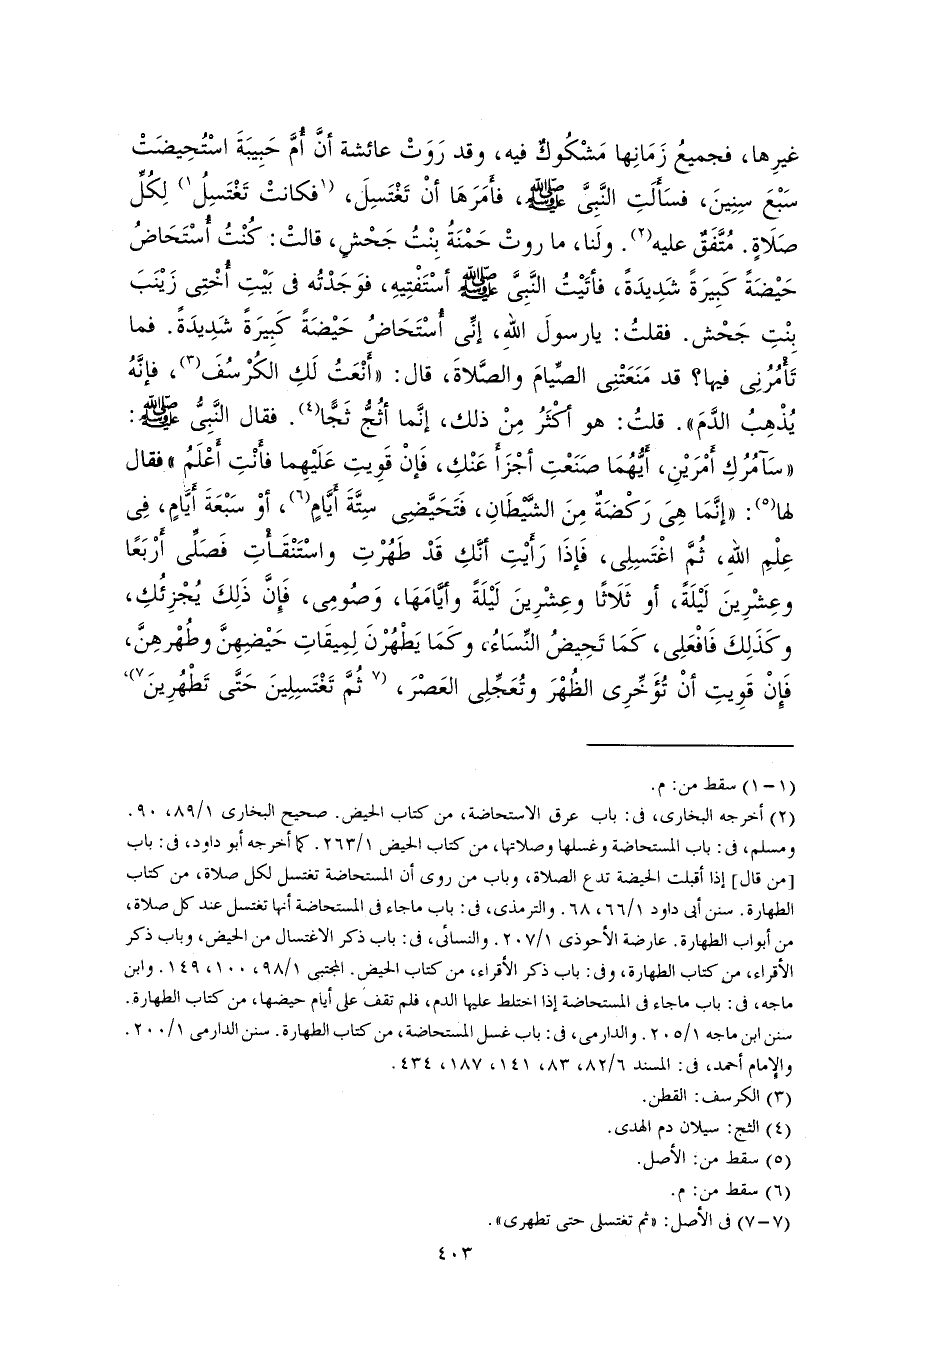 غيرِها، فجميعُ زَمَانِها مَشْكُوكٌ فيه، وقد رَوَتْ عائشة أنَّ أُمَّ حَبِيبَةَ اسْتُحِيضَتْ
سَبْعَ سِنِينَ، فسَأَلَتِ النَّبِىَّ ﷺ، فأمَرَهَا أنْ تَغْتَسِلَ، (١فكانتْ تَغْتَسِلُ١) لِكُلِّ
صلَاةٍ. مُتَّفَقٌ عليه(٢). ولَنا، ما روتْ حَمْنَةُ بِنْتُ جَحْشٍ، قالتْ: كُنْتُ أُسْتَحَاضُ
حَيْضَةً كَبِيرَةً شَدِيدَةً، فأتَيْتُ النَّبِىَّ ﷺ أسْتَفْتِيهِ، فوَجَدْتُه فى بَيْتِ أُخْتِى زَيْنَبَ
بِنْتِ جَحْش. فقلتُ: يارسولَ اللهِ، إنِّى أُسْتَحَاضُ حَيْضَةً كَبِيرَةً شَدِيدَةً. فما
تَأْمُرُنِى فيها؟ قد مَنَعَتْنِى الصِّيَامَ والصَّلاةَ، قال: «أَنْعَتُ لَكِ الكُرْسُفَ(٣)، فإنَّهُ
يُذْهِبُ الدَّمَ». قلتُ: هو أكْثَرُ مِنْ ذلك، إنَّما أثُجُّ ثَجًّا(٤). فقال النَّبِىُّ ﷺ:
«سَآمُرُكِ أَمْرَيْنِ، أَيُّهُمَا صَنَعْتِ أجْزَأَ عَنْكِ، فَإنْ قَوِيتِ عَلَيْهِما فأَنْتِ أعْلَمُ» فقال
لها(٥): «إنَّمَا هِىَ رَكْضَةٌ مِنَ الشَّيْطَانِ، فَتَحَيَّضِى سِتَّةَ أَيَّامٍ(٦)، أوْ سَبْعَةَ أَيَّامٍ، فِى
عِلْمِ اللهِ، ثُمَّ اغْتَسِلِى، فَإذَا رَأَيْتِ أنَّكِ قَدْ طَهُرْتِ واسْتَنْقَأْتِ فَصَلِّى أَرْبَعًا
وعِشْرِينَ لَيْلَةً، أو ثَلَاثًا وعِشْرِينَ لَيْلَةً وأيَّامَهَا، وَصُومِى، فَإنَّ ذَلِكَ يُجْزِئُكِ،
وكَذَلِكَ فَافْعَلِى، كَمَا تَحِيضُ النِّسَاءُ، وكَمَا يَطْهُرْنَ لِمِيقَاتِ حَيْضِهِنَّ وطُهْرِهِنَّ،
فَإنْ قَوِيتِ أنْ تُؤَخِّرِى الظُّهْرَ وتُعَجِّلِى العَصْرَ، (٧ ثُمَّ تَغْتَسِلِينَ حَتَّى تَطْهُرِينَ٧)،
(١-١) سقط من: م.
(٢) أخرجه البخارى، فى: باب عرق الاستحاضة، من كتاب الحيض. صحيح البخارى ٨٩/١، ٩٠.
ومسلم، فى: باب المستحاضة وغسلها وصلاتها، من كتاب الحيض ٢٦٣/١. كما أخرجه أبو داود، فى: باب
[من قال] إذا أقبلت الحيضة تدع الصلاة، وباب من روى أن المستحاضة تغتسل لكل صلاة، من كتاب
الطهارة. سنن أبى داود ٦٦/١، ٦٨. والترمذى، فى: باب ماجاء فى المستحاضة أنها تغتسل عند كل صلاة،
من أبواب الطهارة. عارضة الأحوذى ٢٠٧/١. والنسائى، فى: باب ذكر الاغتسال من الحيض، وباب ذكر
الأقراء، من كتاب الطهارة، وفى: باب ذكر الأقراء، من كتاب الحيض. المجتبى ٩٨/١، ١٠٠، ١٤٩. وابن
ماجه، فى: باب ماجاء فى المستحاضة إذا اختلط عليها الدم، فلم تقف على أيام حيضها، من كتاب الطهارة.
سنن ابن ماجه ٢٠٥/١. والدارمى، فى: باب غسل المستحاضة، من كتاب الطهارة. سنن الدارمى ٢٠٠/١.
والإمام أحمد، فى: المسند ٨٢/٦، ٨٣، ١٤١، ١٨٧، ٤٣٤.
(٣) الكرسف: القطن.
(٤) الثج: سيلان دم الهدى.
(٥) سقط من: الأصل.
(٦) سقط من: م.
(٧-٧) فى الأصل: «ثم تغتسلى حتى تطهرى».
٤٠٣